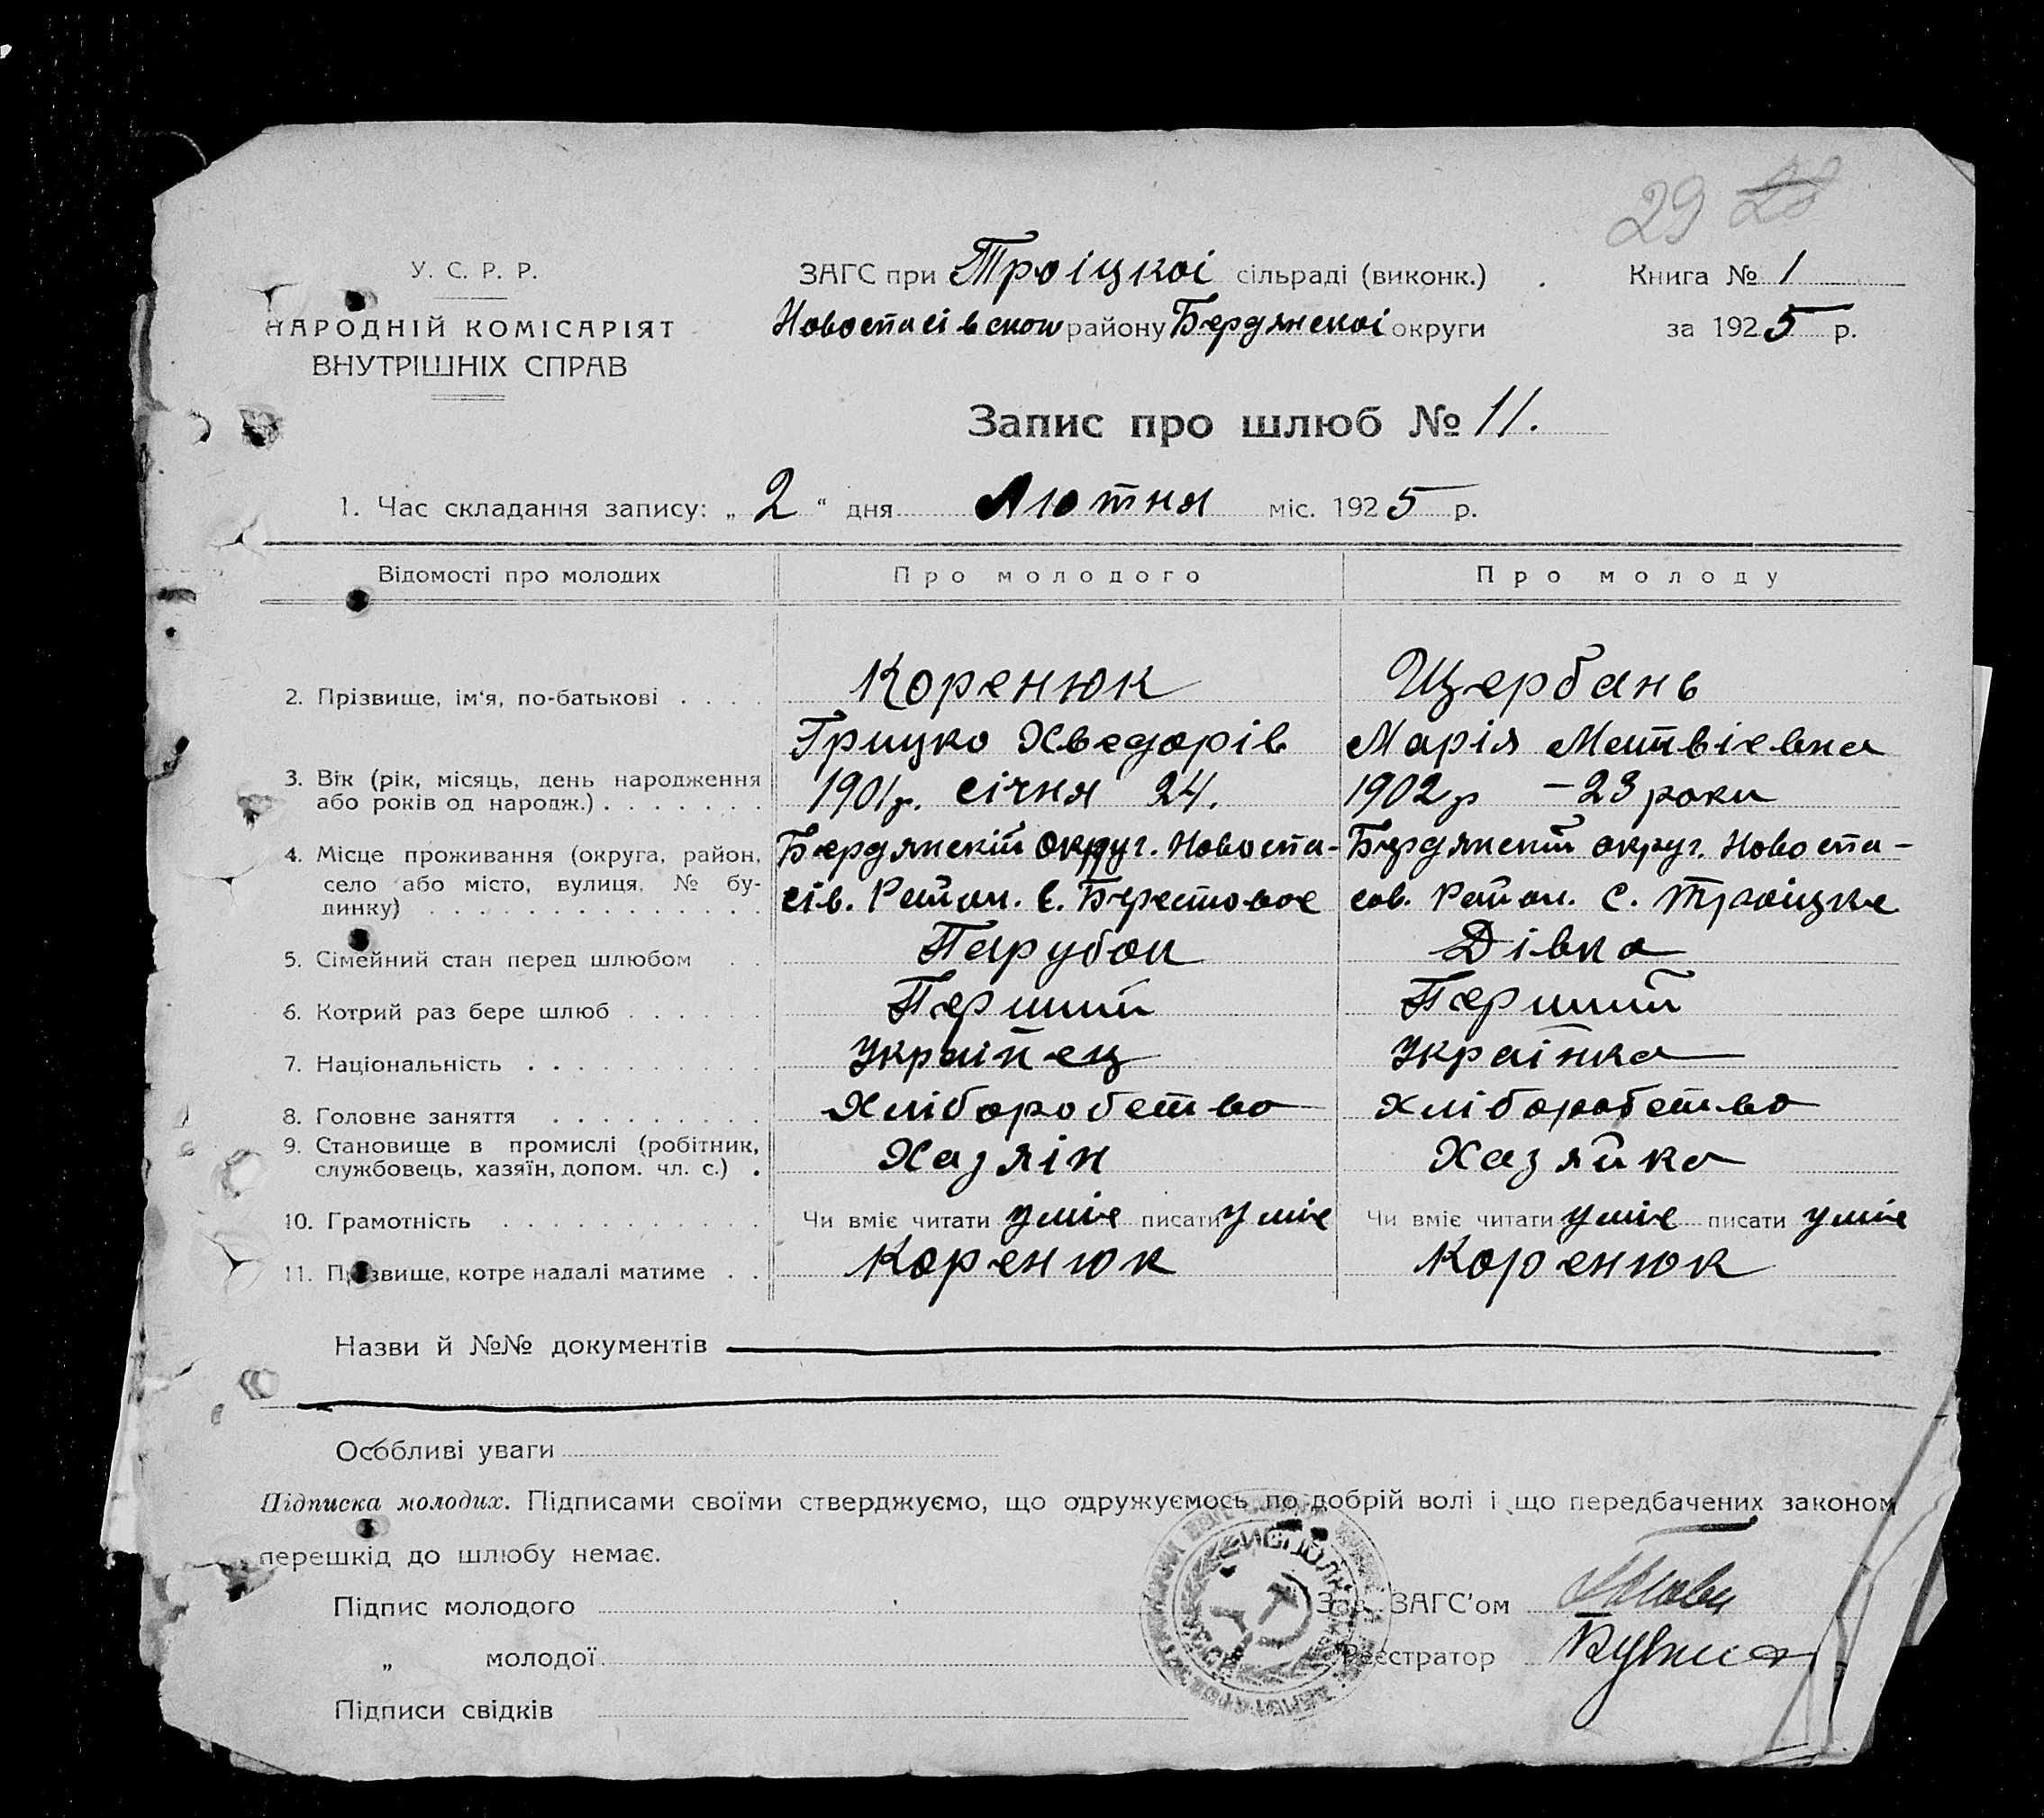 29 28
У. С. Р. Р.
НАРОДНІЙ КОМІСАРІЯТ
ВНУТРІШНІХ СПРАВ
ЗАГС при Троіцкоі сільраді (виконк.)
Новоспасівськоі району Бердянскоі округи
Книга № 1
за 1925 р.
Запис про шлюб № 11.
1. Час складання запису: „2“ дня Лютня міс. 1925 р.
Відомості про молодих Про молодого Про молоду
2. Прізвище, ім'я, по-батькові . . . . Коренюк Щербань
Грицко Хведорів Марія Матвієвна
3. Вік (рік, місяць, день народження
або років од народж.) . . . . . . . 1901р. січня 24. 1902р – 23 роки
4. Місце проживання (округа, район, Бердянскій округ. Новоспа- Бердянский округ. Новоспа-
село або місто, вулиця, № бу- сів. Район. с. Берестовое сов. Район. с. Троіцке
динку) . . . . . . . . . . . . . .
5. Сімейний стан перед шлюбом . . Парубок Дівка
6. Котрий раз бере шлюб . . . . . . Перший Перший
7. Національність . . . . . . . . . . Украінец Украінка
8. Головне заняття . . . . . . . . . Хліборобство хліборобство
9. Становище в промислі (робітник,
службовець, хазяїн, допом. чл. с.) . Хазяін Хазяйка
10. Грамотність . . . . . . . . . . . Чи вміє читати уміє писати уміє Чи вміє читати уміє писати уміє
11. Прізвище, котре надалі матиме . . Коренюк Коренюк
Назви й №№ документів
Особливі уваги
Підписка молодих. Підписами своїми стверджуємо, що одружуємось по добрій волі і що передбачених законом
перешкід до шлюбу немає.
Підпис молодого Зав. ЗАГС'ом
„ молодої Реєстратор
Підписи свідків